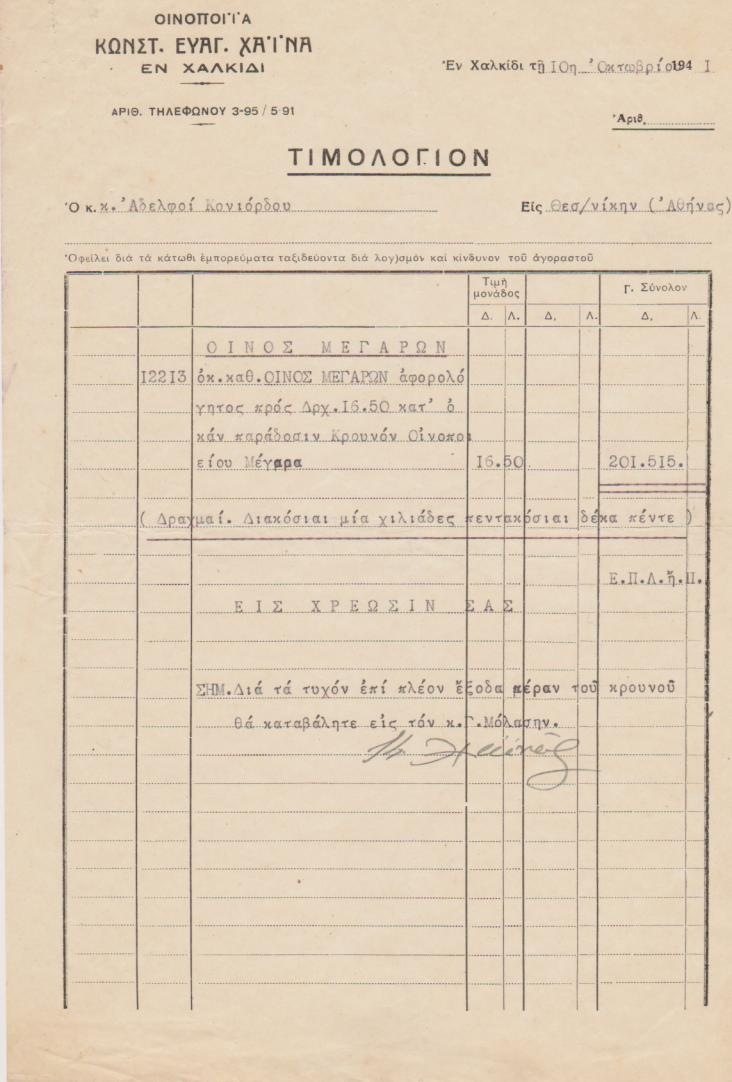 ΟΙΝΟΠΟΙΪΑ
ΚΩΝΣΤ. ΕΥΑΓ. ΧΑΪΝΑ
ΕΝ ΧΑΛΚΙΔΙ
Ἐν Χαλκίδι τῇ 10η Ὀκτωβρίου 1941
ΑΡΙΘ. ΤΗΛΕΦΩΝΟΥ 3-95 / 5-91
Ἀριθ.
ΤΙΜΟΛΟΓΙΟΝ
Ὁ κ. κ. Ἀδελφοί Κονιόρδου Εἰς Θεσ/νίκην (Ἀθήνας)
Ὀφείλει διά τά κάτωθι ἐμπορεύματα ταξιδεύοντα διά λογ)σμόν καί κίνδυνον τοῦ ἀγοραστοῦ
Τιμή μονάδος Γ. Σύνολον
Δ. Λ. Δ, Λ. Δ, Λ.
ΟΙΝΟΣ ΜΕΓΑΡΩΝ
12213 ὀκ.καθ.ΟΙΝΟΣ ΜΕΓΑΡΩΝ ἀφορολό
γητος πρός Δρχ.16.50 κατ' ὀ
κάν παράδοσιν Κρουνόν Οἰνοποι
είου Μέγαρα 16.50 201.515.
( Δραχμαί. Διακόσιαι μία χιλιάδες πεντακόσιαι δέκα πέντε )
Ε.Π.Λ.ἤ.Π.
ΕΙΣ ΧΡΕΩΣΙΝ ΣΑΣ
ΣΗΜ.Διά τά τυχόν ἐπί πλέον ἔξοδα πέραν τοῦ κρουνοῦ
θά καταβάλητε εἰς τόν κ.Γ.Μόλασην.